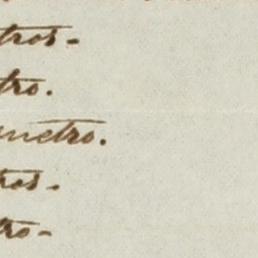 tros-
tro.
metro.
tros-
tro-